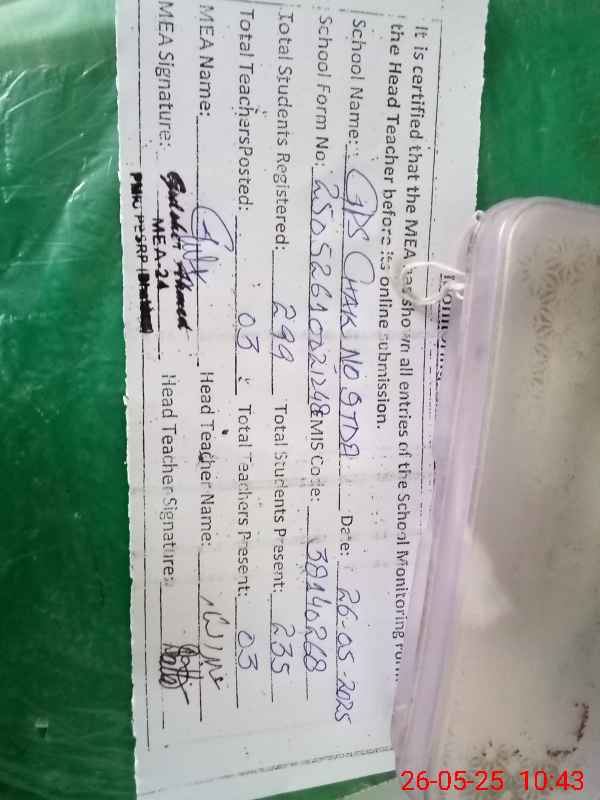 It is certified that the MEA has shown all entries of the School Monitoring
the Head Teacher before its online submission.
School Name: GPS CHAK NO 9 TDA Date: 26-05-2025
School Form No: EMIS Code: 38140268
Total Students Registered: 299 Total Students Present: 235
Total Teachers Posted: 03 Total Teachers Present: 03
MEA Name: Head Teacher Name:
MEA Signature: Ahmed Head Teacher Signature:
MEA-24
26-05-25 10:43